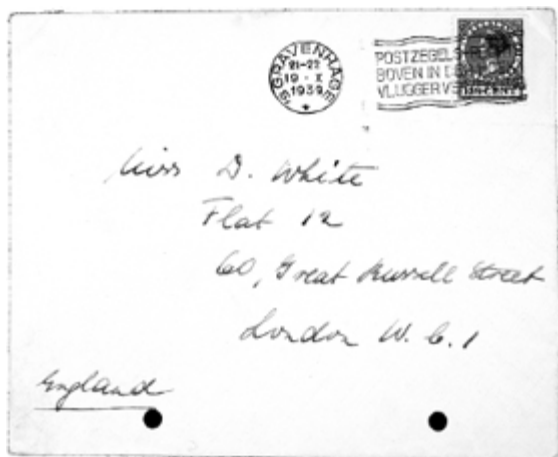 'S GRAVENHAGE
21-22
19 · X
1939
POSTZEGELS
BOVEN IN DE
VLUGGER
CENT
Miss D. White
Flat 12
60, Great Russell Street
London W.C.1
England